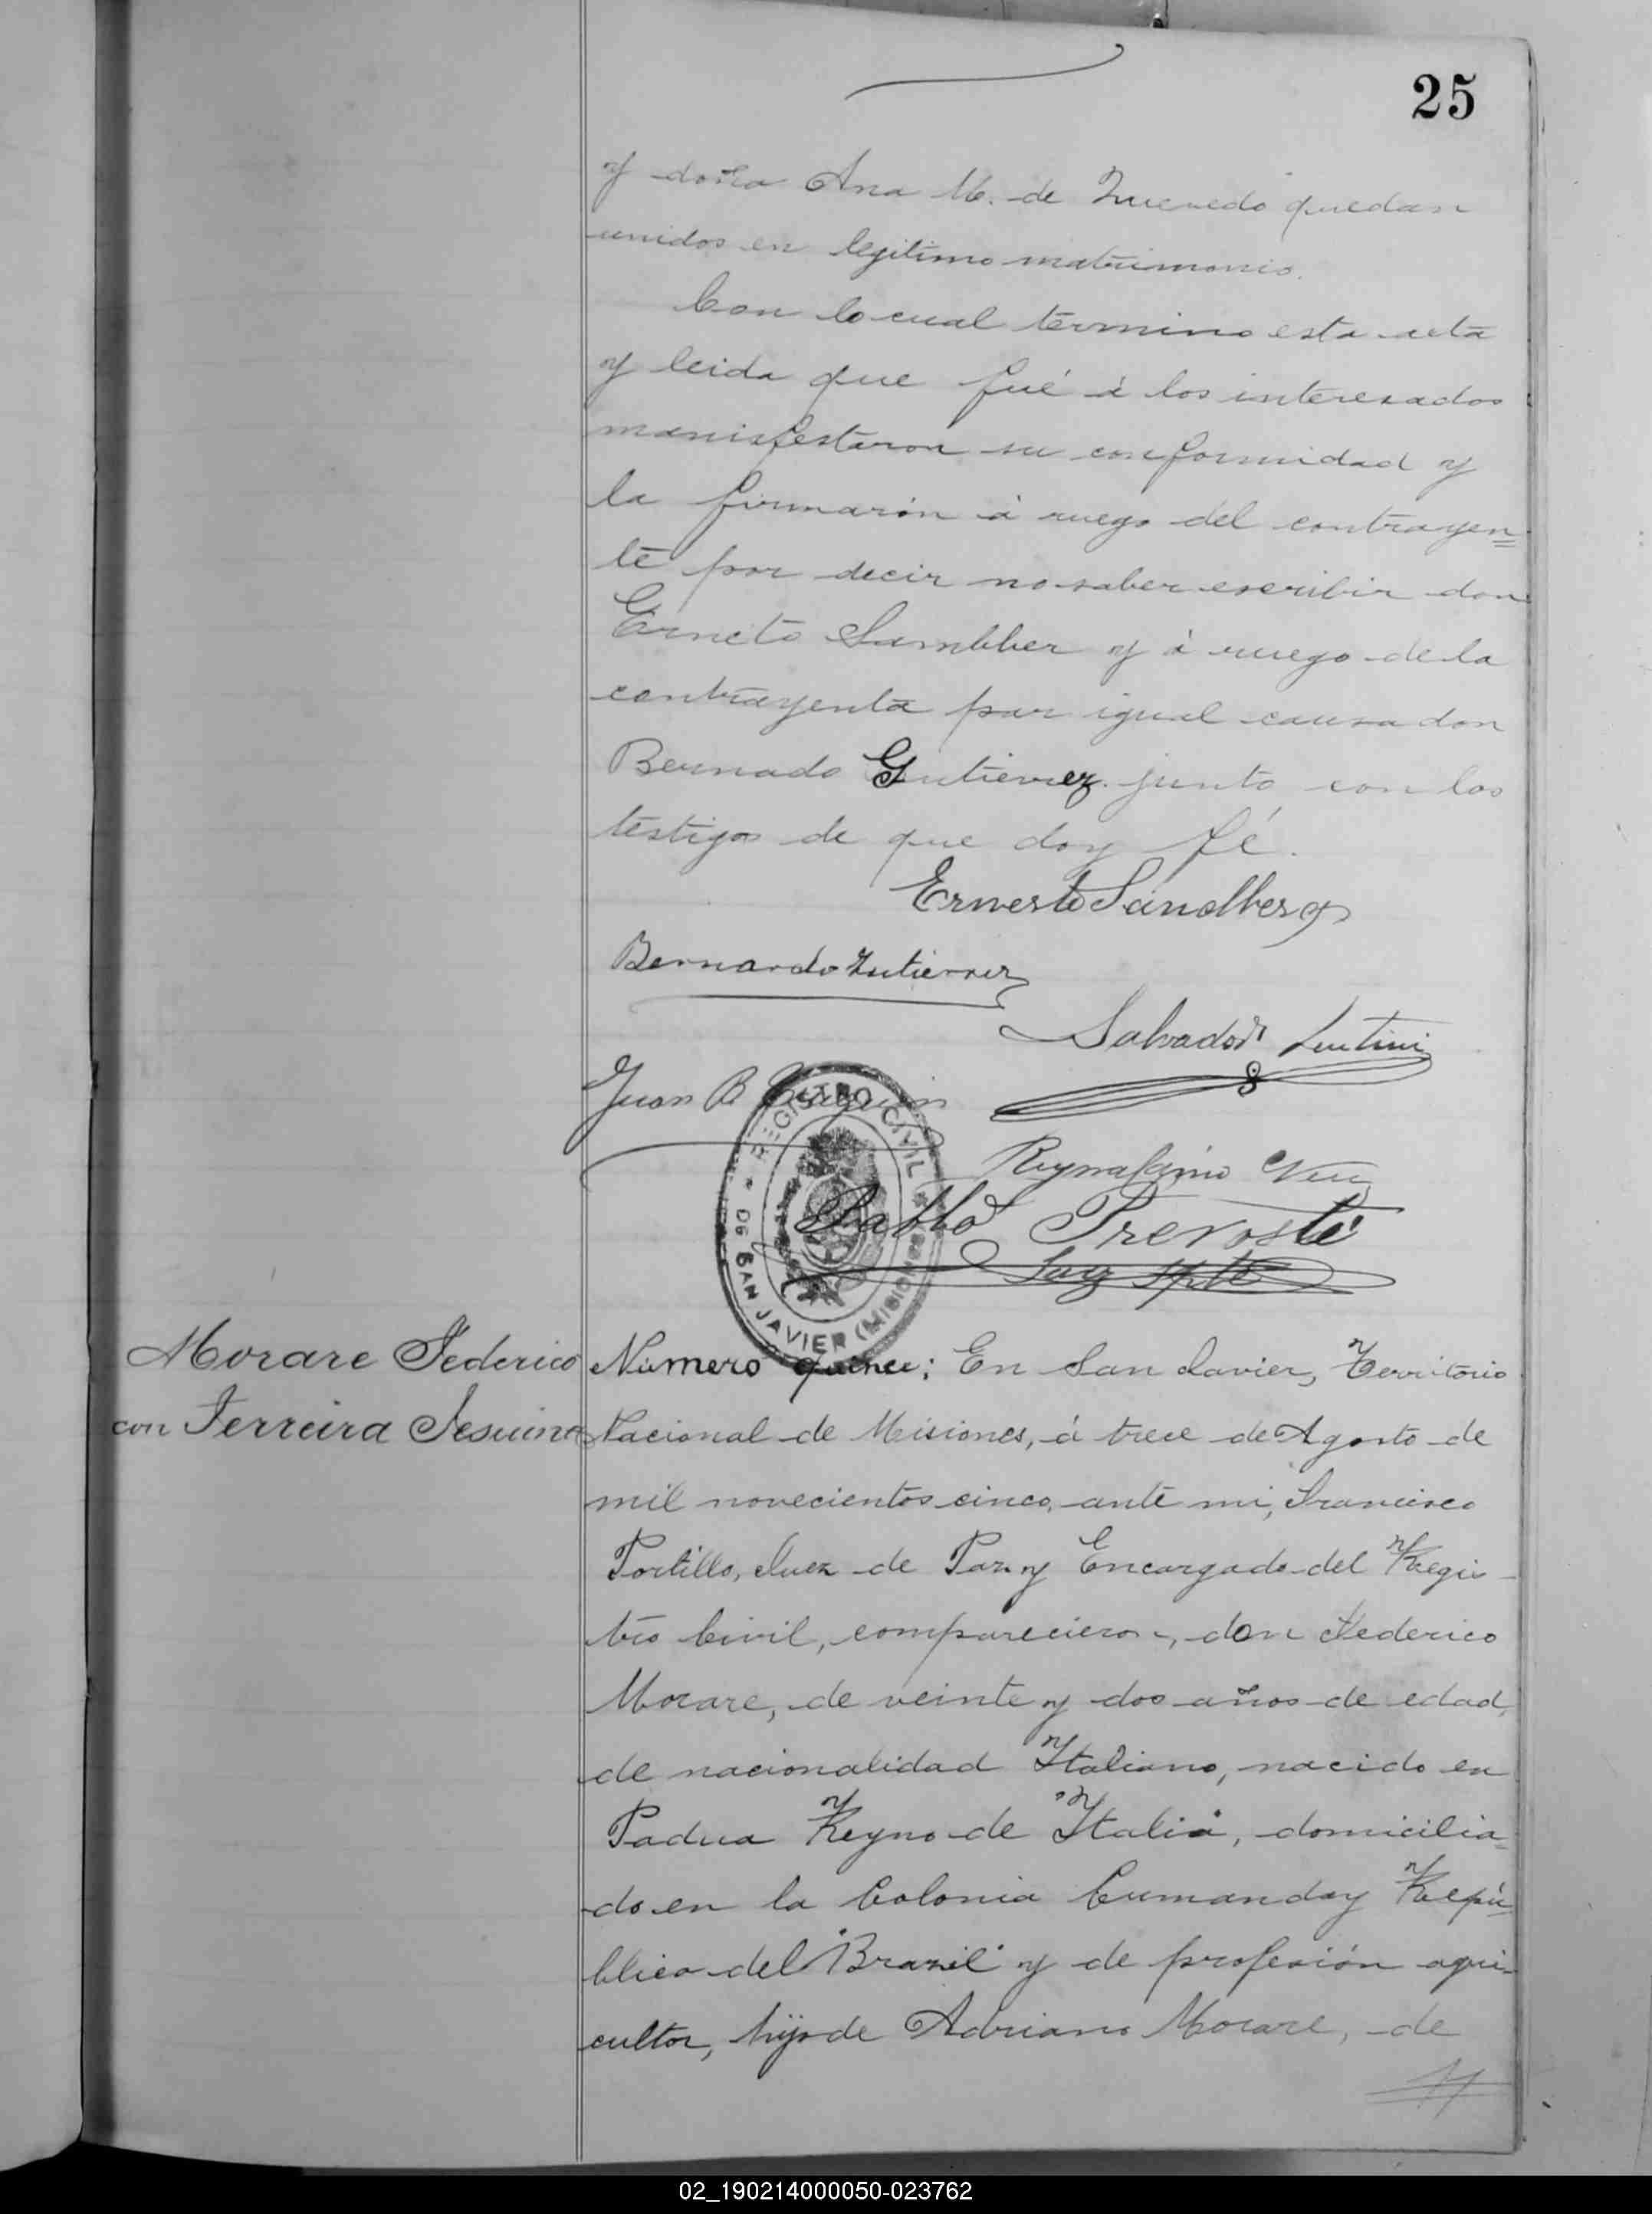 25
y doña Ana M. de Quevedo quedan
unidos en legitimo matrimonio.
Con lo cual termino esta acta
y leida que fué á los interesados
manisfestaron su conformidad y
la firmarón á ruego del contrayen=
te por decir no saber escribir don
Erneto Sambber y á ruego de la
contrayenta por igual causa don
Bernado Gutierrez junto con los
testigos de que doy fé.
Ernesto Sandberg
Bernardo Gutierrez
Salvador
Juan B
REGISTRO CIVIL
* DE SAN JAVIER (MISIONES) *
Pablo Prevosté
Morare Federico
con Ferreira Jesuina
Número quince; En San Javier, Territorio
Nacional de Misiones, á trece de Agosto de
mil novecientos cinco, ante mi, Francisco
Portillo, Juez de Paz y Encargado del Regis-
tro Civil, comparecieron, don Federico
Morare, de veinte y dos años de edad,
de nacionalidad Italiano, nacido en
Padua Reyno de Italia, domicilia=
do en la Colonia Cumanday Repú=
blica del Brazil y de profesión agri-
cultor, hijo de Adriano Morare, de
02_190214000050-023762